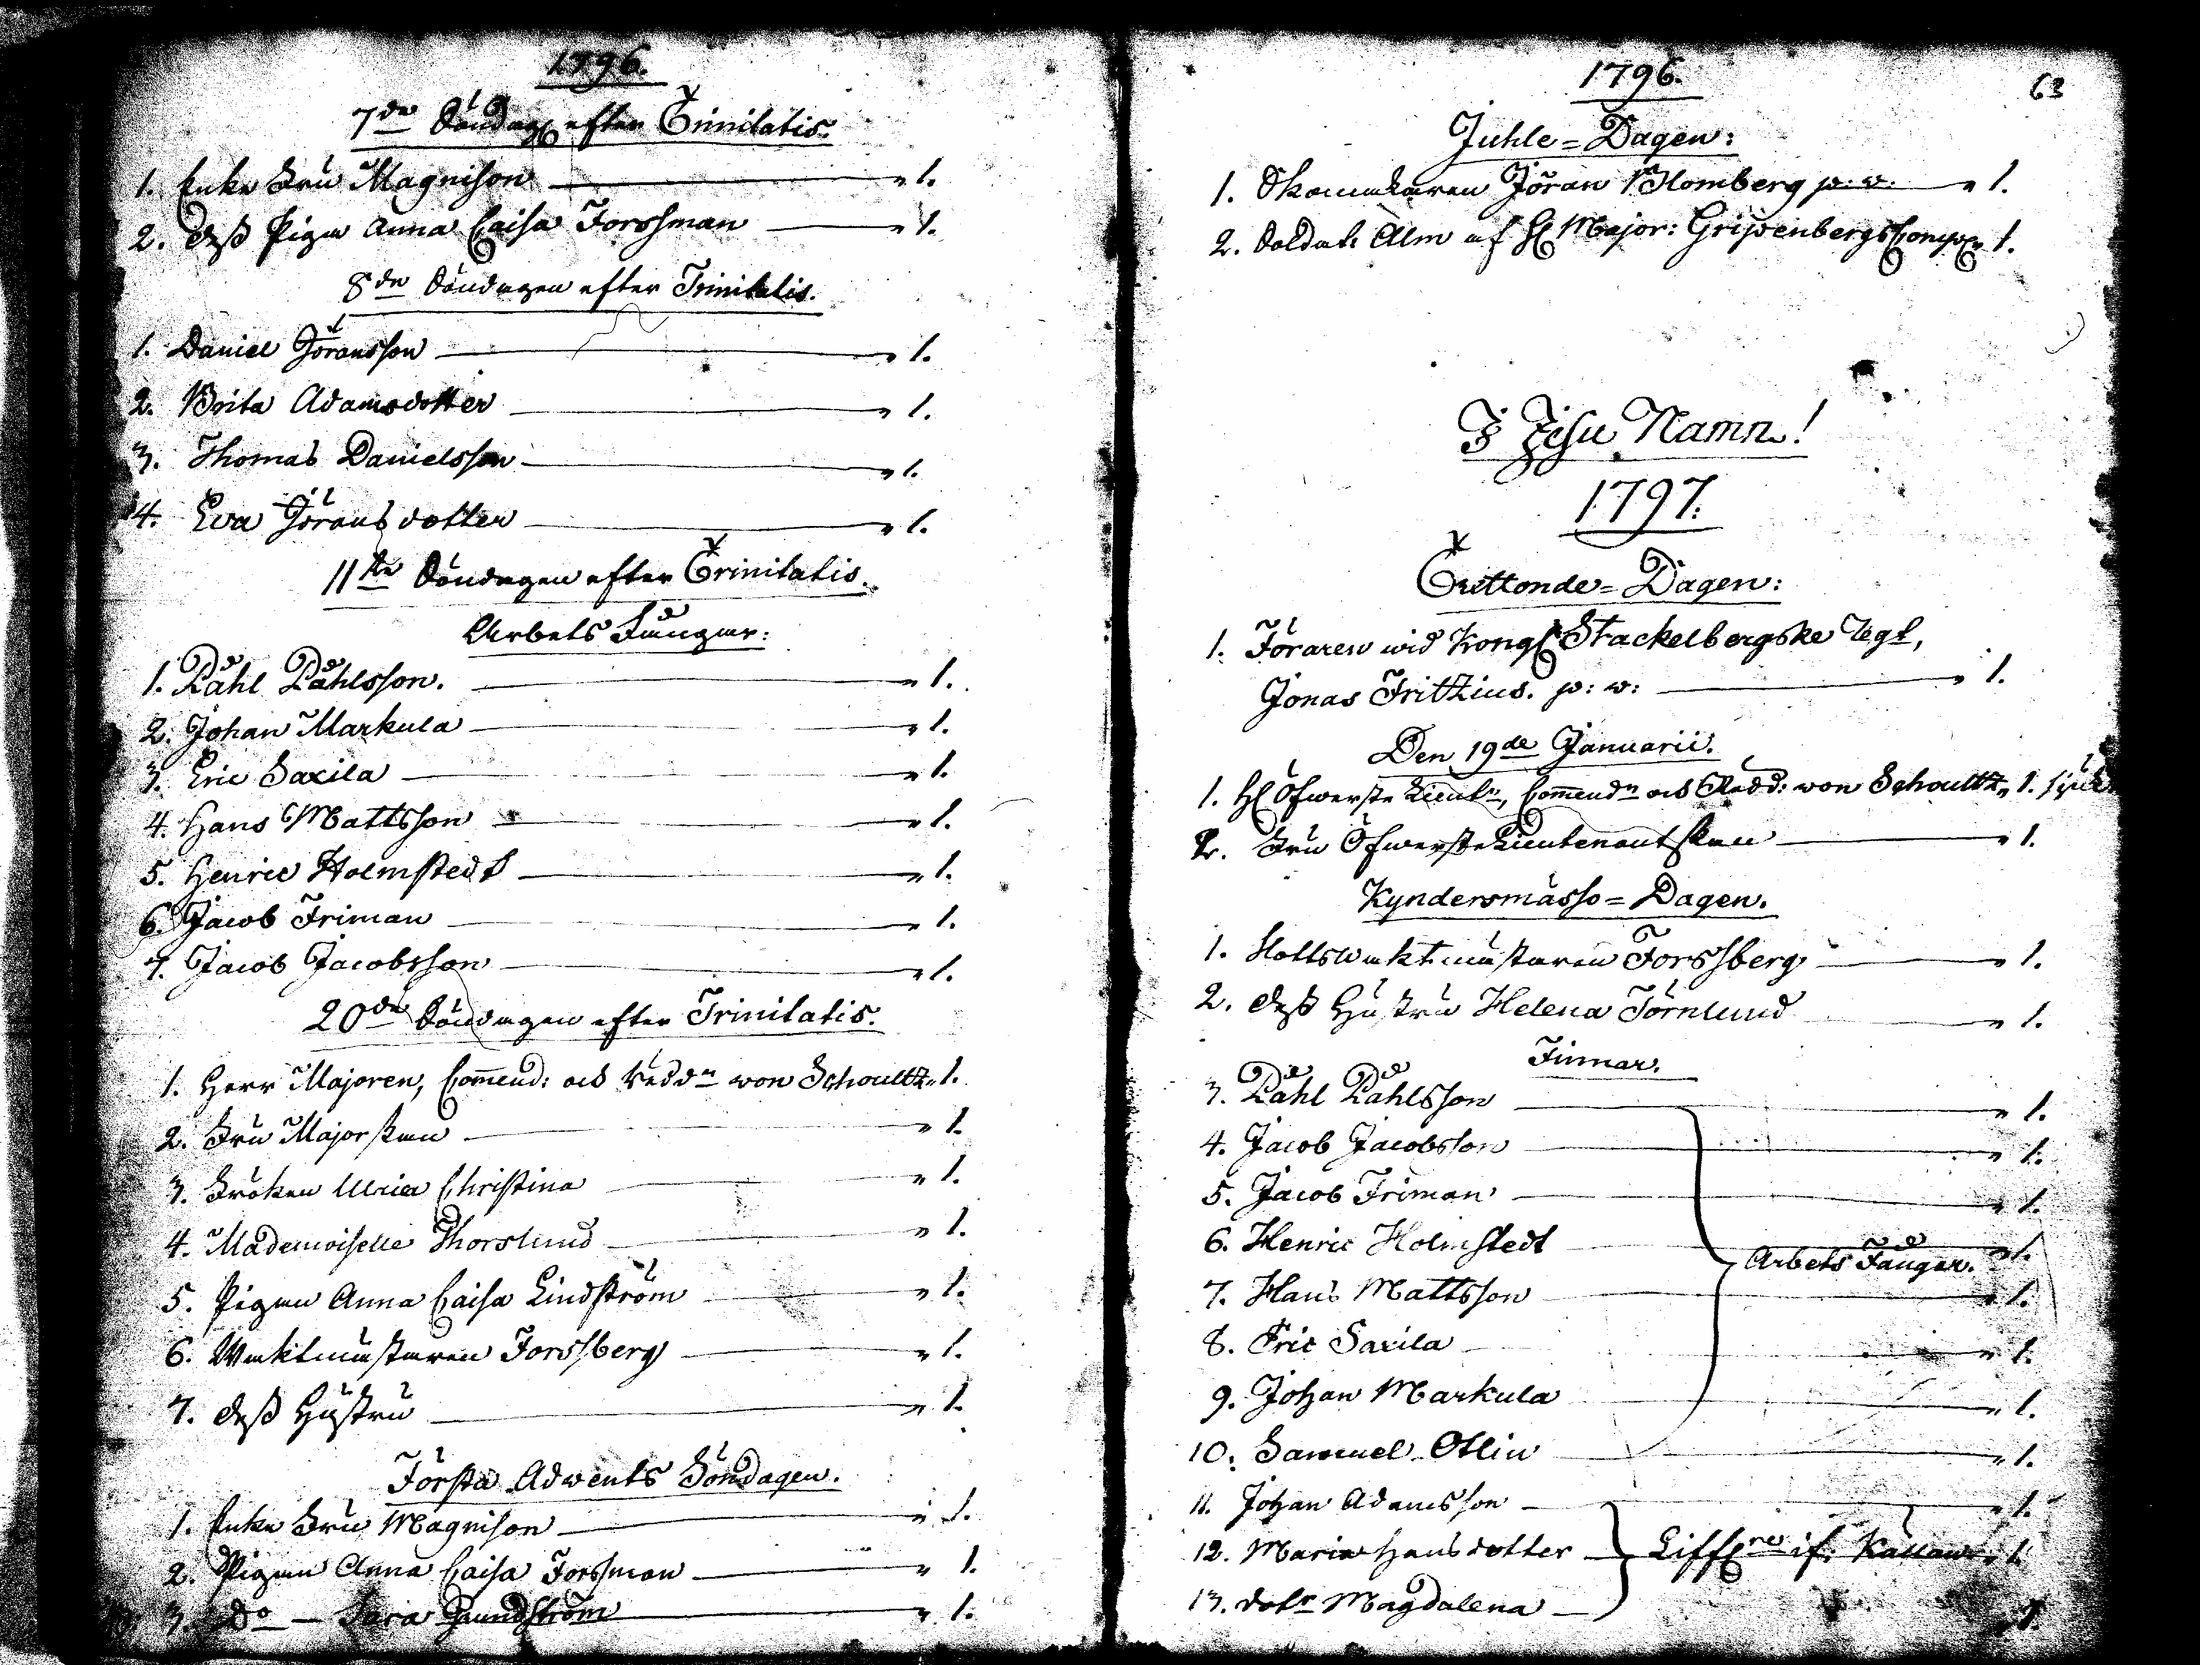 1796.
7de Söndag efter Trinitatis.
1. Enke Fru Magnison „ 1.
2. Dess Piga Anna Caisa Forssman „ 1.
8de Söndagen efter Trinitatis.
1. Daniel Jöransson „ 1.
2. Brita Adamsdotter „ 1.
3. Thomas Danielsson „ 1.
4. Eva Jöransdotter „ 1.
11te Söndagen efter Trinitatis.
Arbets Fångar:
1. Påhl Påhlsson. „ 1.
2. Johan Markula „ 1.
3. Eric Saxila „ 1.
4. Hans Mattsson „ 1.
5. Henric Holmstedt „ 1.
6. Jacob Friman „ 1.
7. Jacob Jacobsson „ 1.
20de Söndagen efter Trinitatis.
1. Herr Majoren, Com̅end: och Riddn von Schoultz „ 1.
2. Fru Majorskan „ 1.
3. Fröken Ulrica Christina „ 1.
4. Mademoiselle Thorslund „ 1.
5. Pigan Anna Caisa Lindström „ 1.
6. Waktmästaren Forssberg „ 1.
7. Dess Hustru „ 1.
Första Advents Söndagen.
1. Enke Fru Magnison „ 1.
2. Pigan Anna Caisa Forssman „ 1.
3. Do — Sara Grundström „ 1.
1796.
63
Juhle=Dagen:
1. Skomakaren Jöran Blomberg p: v: „ 1.
2. Soldat: Alm af H Major: Gripenbergs Comp „ 1.
I Jesu Namn!
1797.
Trettonde=Dagen:
1. Föraren wid Kongl Stackelbergske Regt,
Jonas Fritzius. p: v: „ 1.
Den 19de Januarii.
1. H Öfwerste Lieutn, Com̅endn och Ridd: von Schoultz „ 1. sjuk
2. Fru Öfwerste Lieutenantskan „ 1.
Kyndersmässo=Dagen.
1. Slottswaktmästaren Forssberg „ 1.
2. Dess Hustru Helena Törnlund „ 1.
Finnar.
3. Påhl Påhlsson „ 1.
4. Jacob Jacobsson „ 1.
5. Jacob Friman „ 1.
6. Henric Holmstedt „ 1.
Arbets Fångar.
7. Hans Mattsson „ 1.
8. Eric Saxila „ 1.
9. Johan Markula „ 1.
10. Samuel Ollin „ 1.
11. Johan Adamsson „ 1.
12. Maria Hansdotter „ 1.
13. dotr Magdalena 1.